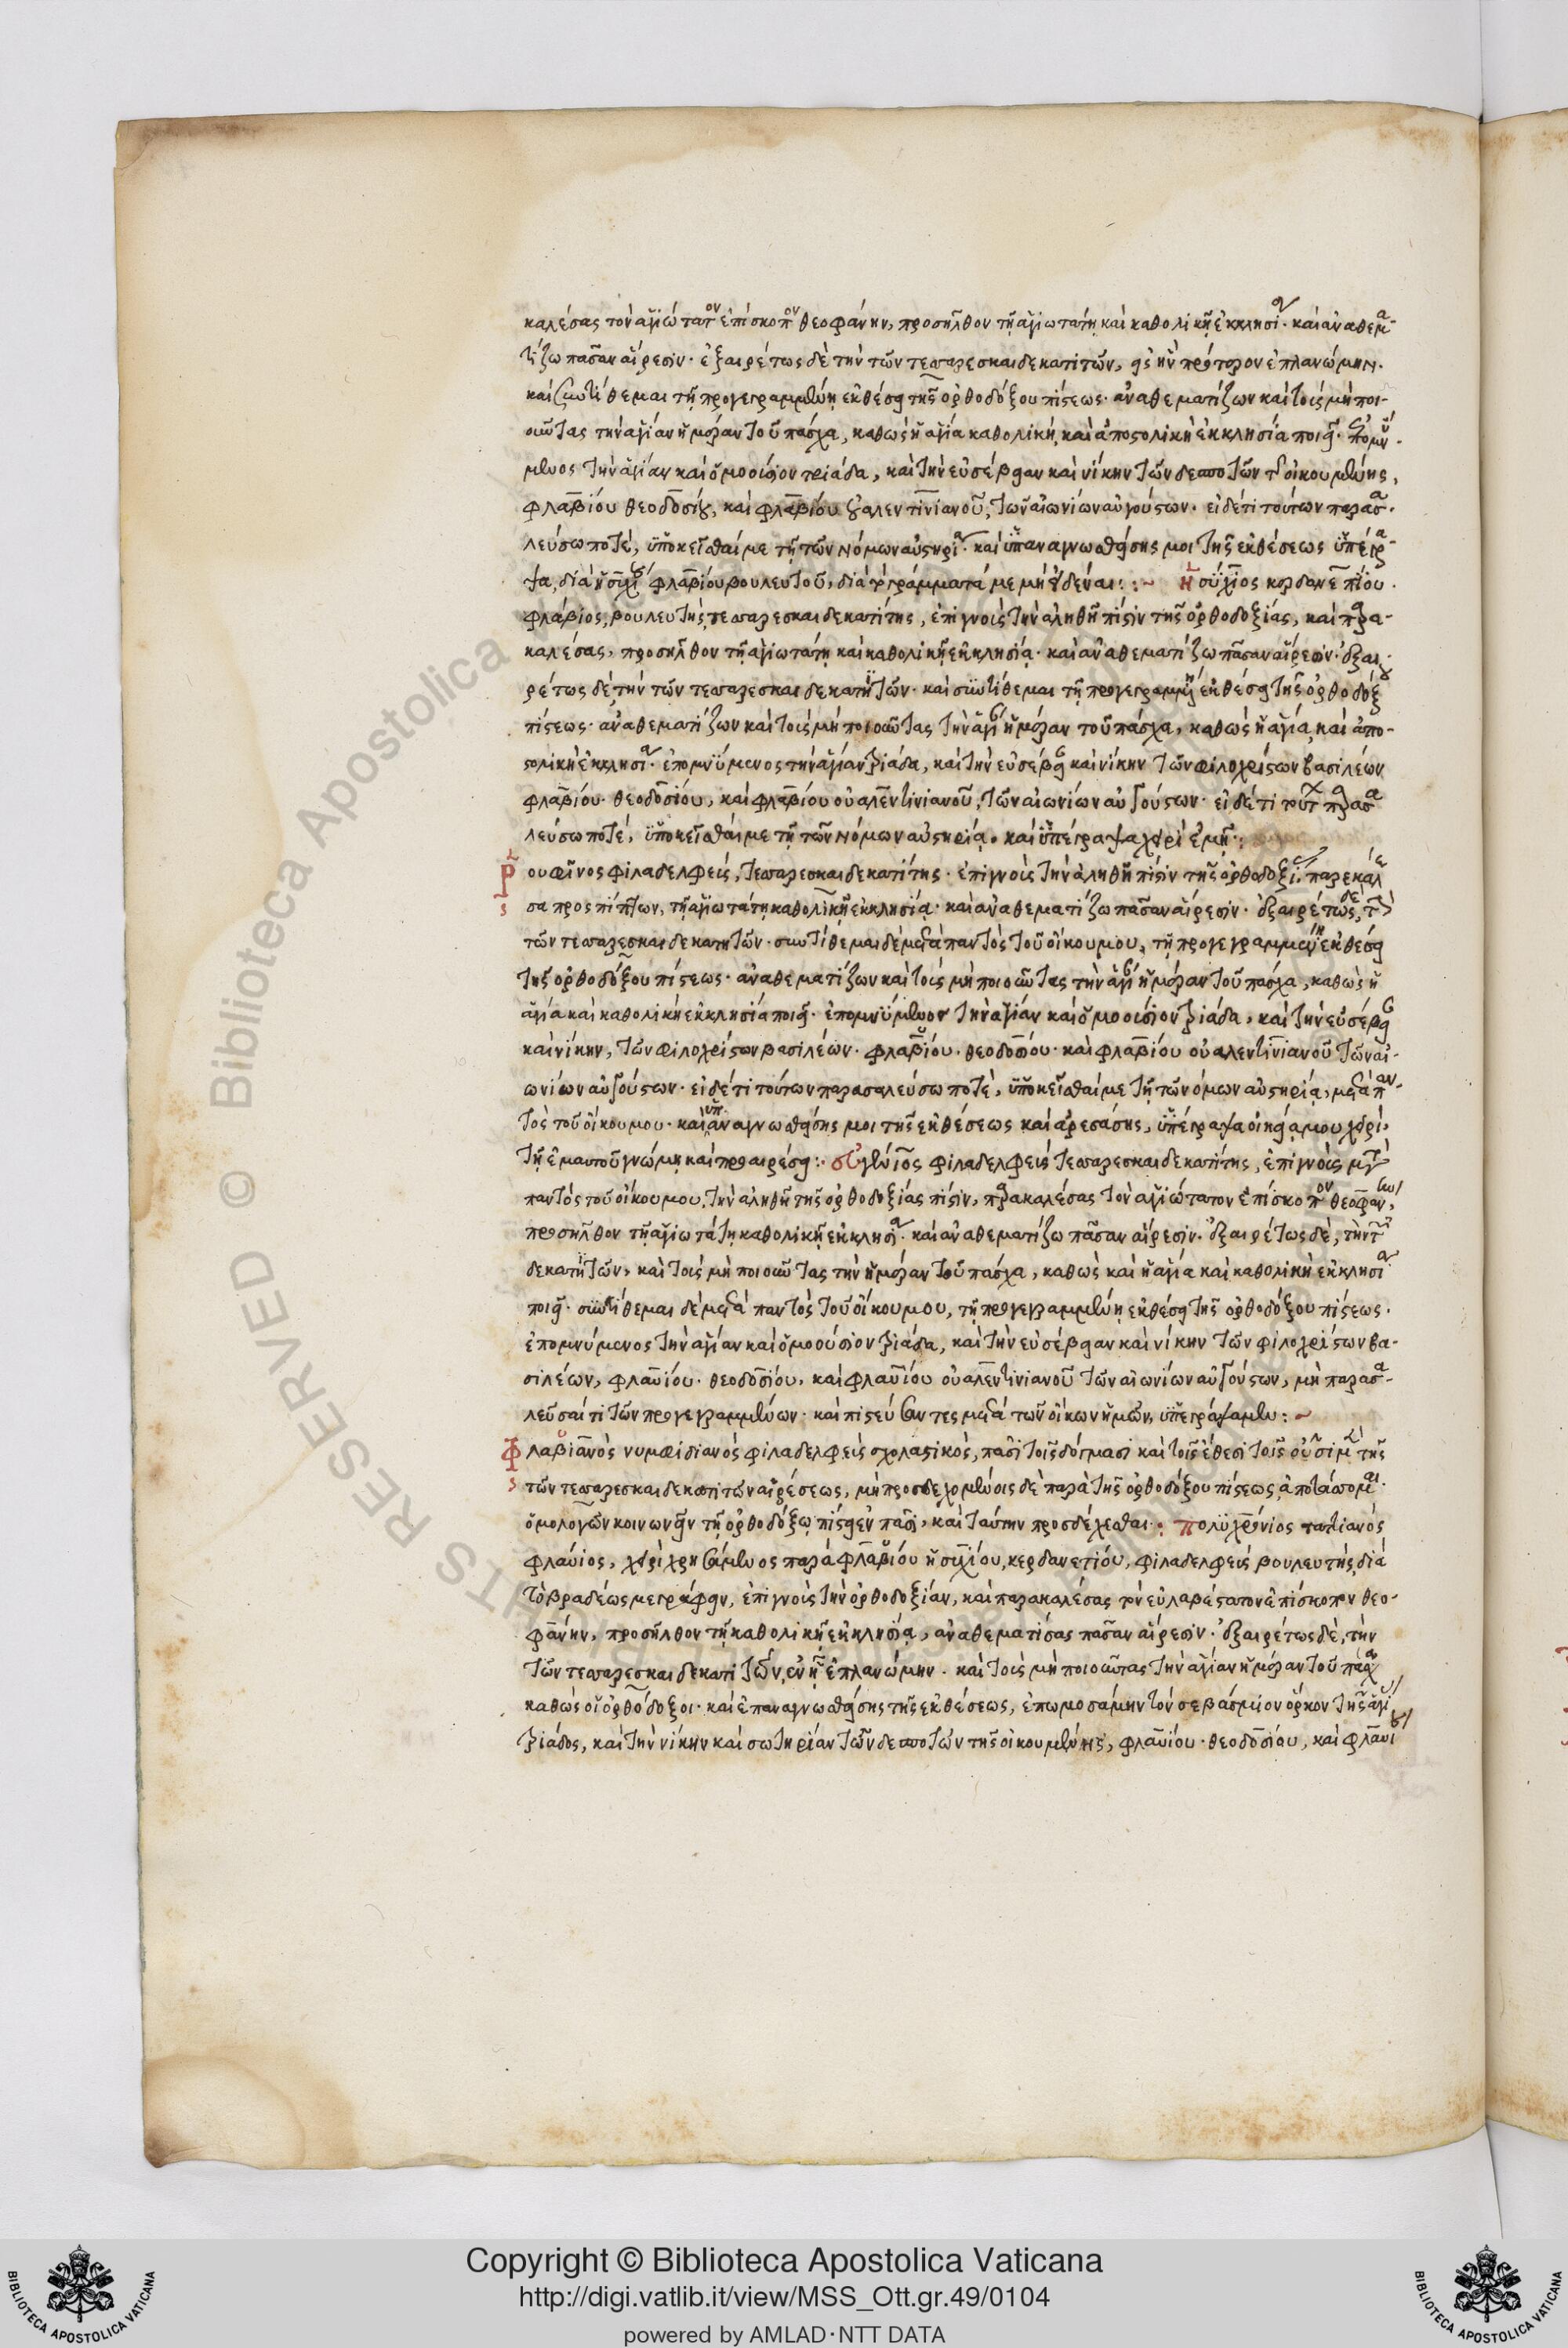 καλέσας τὸν ἁγιώτατον ἐπίσκοπον θεοφάνην, προσῆλθον τῇ ἁγιωτάτῃ καὶ καθολικῇ ἐκκλησία. καὶ ἀναθεμα-
τίζω πᾶσαν αἵρεσιν. ἐξαιρέτως δὲ τὴν τῶν τεσσαρεσκαιδεκατιτῶν, εἰς ἣν πρότερον ἐπλανώμην.
καὶ συντίθεμαι τῇ προγεγραμμένη ἐκθέσει τῆς ὀρθοδόξου πίστεως. ἀναθεματίζων καὶ τοὺς μὴ ποι-
οῦντας τὴν ἁγίαν ἡμέραν τοῦ πάσχα, καθὼς ἡ ἁγία καθολικὴ, καὶ ἀποστολικὴ ἐκκλησία ποιεῖ. ἐπομνύ-
μενος τὴν ἁγίαν καὶ ὁμοούσιον τριάδα, καὶ τὴν εὐσέβειαν καὶ νίκην τῶν δεσποτῶν τῆς οἰκουμένης,
φλαβίου θεοδοσίου, καὶ φλαβίου οὐαλεντινιανοῦ, τῶν αἰωνίων αὐγούστων. εἰ δέ τι τούτων παρασα-
λεύσω ποτὲ, ὑποκεῖσθαί με τῇ τῶν νόμων αὐστηρία. καὶ ὑπαναγνωσθείσης μοι τῆς ἐκθέσεως ὑπέγρα-
ψα, διὰ ἡσυχίου φλαβίου βουλευτοῦ, διὰ τὸ γράμματά με μὴ εἰδέναι:~ ἡσύχιος κερδανεπίου
φλάβιος, βουλευτὴς, τεσσαρεσκαιδεκατίτης, ἐπιγνοὺς τὴν ἀληθῆ πίστιν τῆς ὀρθοδοξίας, καὶ παρα-
καλέσας, προσῆλθον τῇ ἁγιωτάτῃ καὶ καθολικῇ ἐκκλησίᾳ. καὶ ἀναθεματίζω πᾶσαν αἵρεσιν. ἐξαι-
ρέτως δὲ, τὴν τῶν τεσσαρεσκαιδεκατητῶν. καὶ συντίθεμαι τῇ προγεγραμμένη ἐκθέσει τῆς ὀρθοδόξου
πίστεως. ἀναθεματίζων καὶ τοὺς μὴ ποιοῦντας τὴν ἁγίαν ἡμέραν τοῦ πάσχα, καθὼς ἡ ἁγία, καὶ ἀπο-
στολικὴ ἐκκλησία. ἐπομνύμενος τὴν ἁγίαν τριάδα, καὶ τὴν εὐσέβειαν καὶ νίκην τῶν φιλοχρίστων βασιλέων
φλαβίου. θεοδοσίου, καὶ φλαβίου οὐαλεντινιανοῦ, τῶν αἰωνίων αὐγούστων. εἰ δέ τι τούτων παρασα
λεύσω ποτὲ, ὑποκεῖσθαί με τῇ τῶν νόμων αὐστηρίᾳ. καὶ ὑπέγραψα χειρὶ ἐμῇ:
ρουφῖνος φιλαδελφεὺς, τεσσαρεσκαιδεκατίτης. ἐπιγνοὺς τὴν ἀληθῆ πίστιν τῆς ὀρθοδοξίας. παρεκάλε
σα προσπίπτων, τῇ ἁγιωτάτῃ καθολικῇ ἐκκλησίᾳ. καὶ ἀναθεματίζω πᾶσαν αἵρεσιν. ἐξαιρέτως δὲ, τὴν
τῶν τεσσαρεσκαιδεκατητῶν. συντίθεμαι δὲ μετὰ παντὸς τοῦ οἴκου μου, τῇ προγεγραμμένη ἐκθέσει
τῆς ὀρθοδόξου πίστεως. ἀναθεματίζων καὶ τοὺς μὴ ποιοῦντας τὴν ἁγίαν ἡμέραν τοῦ πάσχα, καθὼς ἡ
ἁγία καὶ καθολικὴ ἐκκλησία ποιεῖ. ἐπομνύμενον τὴν ἁγίαν καὶ ὁμοούσιον τριάδα, καὶ τὴν εὐσέβειαν
καὶ νίκην, τῶν φιλοχρίστων βασιλέων. φλαβίου. θεοδοσίου. καὶ φλαβίου οὐαλεντινιανοῦ τῶν αἰ-
ωνίων αὐγούστων. εἰ δέ τι τούτων παρασαλεύσω ποτὲ, ὑποκεῖσθαί με τῇ τῶν νόμων αὐστηρίᾳ, μετὰ παν-
τὸς τοῦ οἴκου μου. καὶ ὑπαναγνωσθείσης μοι τῆς ἐκθέσεως καὶ ἀρεσάσης, ὑπέγραψα οἰκείᾳ μου χειρὶ,
τῇ ἐμαυτοῦ γνώμῃ καὶ προαιρέσει:. εὐγένιος φιλαδελφεὺς τεσσαρεσκαιδεκατίτης, ἐπιγνοὺς μετὰ
παντὸς τοῦ οἴκου μου, τὴν ἀληθῆ τῆς ὀρθοδοξίας πίστιν, παρακαλέσας τὸν ἁγιώτατον ἐπίσκοπον θεοφάνην,
προσῆλθον τῇ ἁγιωτάτῃ καθολικῇ ἐκκλησία. καὶ ἀναθεματίζω πᾶσαν αἵρεσιν. ἐξαιρέτως δὲ, τὴν τ
δεκατητῶν, καὶ τοὺς μὴ ποιοῦντας τὴν ἡμέραν τοῦ πάσχα, καθὼς καὶ ἡ ἁγία καὶ καθολικὴ ἐκκλησία
ποιεῖ. συντίθεμαι δὲ μετὰ παντὸς τοῦ οἴκου μου, τῇ προγεγραμμένη ἐκθέσει τῆς ὀρθοδόξου πίστεως.
ἐπομνύμενος τὴν ἁγίαν καὶ ὁμοούσιον τριάδα, καὶ τὴν εὐσέβειαν καὶ νίκην τῶν φιλοχρίστων βα-
σιλέων, φλαυίου. θεοδοσίου, καὶ φλαυίου οὐαλεντινιανοῦ τῶν αἰωνίων αὐγούστων, μὴ παρασα-
λεῦσαί τι τῶν προγεγραμμένων. καὶ πιστεύσαντες μετὰ τῶν οἴκων ἡμῶν, ὑπεγράψαμεν:~
φλαβιανὸς νυμφιδιανὸς φιλαδελφεὺς σχολαστικὸς, πᾶσι τοῖς δόγμασι καὶ τοῖς ἔθεσι τοῖς οὖσι μετὰ τῆς
τῶν τεσσαρεσκαιδεκατιτῶν αἱρέσεως, μὴ προσδεχομένοις δὲ παρὰ τῆς ὀρθοδόξου πίστεως, ἀποτάσσομαι.
ὁμολογῶν κοινωνεῖν τῇ ὀρθοδόξῳ πίστει ἐν πᾶσι, καὶ ταύτην προσδέχεσθαι. πολυχρόνιος τατιανὸς
φλαύιος, χειρὶ χρησάμενος παρὰ φλαβίου ἡσυχίου, κερδανετίου, φιλαδελφεὺς βουλευτὴς, διὰ
τὸ βραδέως με γράφειν, ἐπιγνοὺς τὴν ὀρθοδοξίαν, καὶ παρακαλέσας τὸν εὐλαβέστατον ἐπίσκοπον θεο-
φάνην, προσῆλθον τῇ καθολικῇ ἐκκλησίᾳ, ἀναθεματίσας πᾶσαν αἵρεσιν. ἐξαιρέτως δὲ, τὴν
τῶν τεσσαρεσκαιδεκατιτῶν, ἐν ᾗ ἐπλανώμην. καὶ τοὺς μὴ ποιοῦντας τὴν ἁγίαν ἡμέραν τοῦ πάσχα
καθὼς οἱ ὀρθόδοξοι. καὶ ἐπαναγνωσθείσης τῆς ἐκθέσεως, ἐπωμοσάμην τὸν σεβάσμιον ὅρκον τῆς ἁγί
τριάδος, καὶ τὴν νίκην καὶ σωτηρίαν τῶν δεσποτῶν τῆς οἰκουμένης, φλαυίου. θεοδοσίου, καὶ φλαυίου
Biblioteca Apostolica
RIGHTS RESERVED © Biblioteca Apostolica
Copyright © Biblioteca Apostolica Vaticana
http://digi.vatlib.it/view/MSS_Ott.gr.49/0104
powered by AMLAD·NTT DATA
BIBLIOTECA APOSTOLICA VATICANA
BIBLIOTECA APOSTOLICA VATICANA